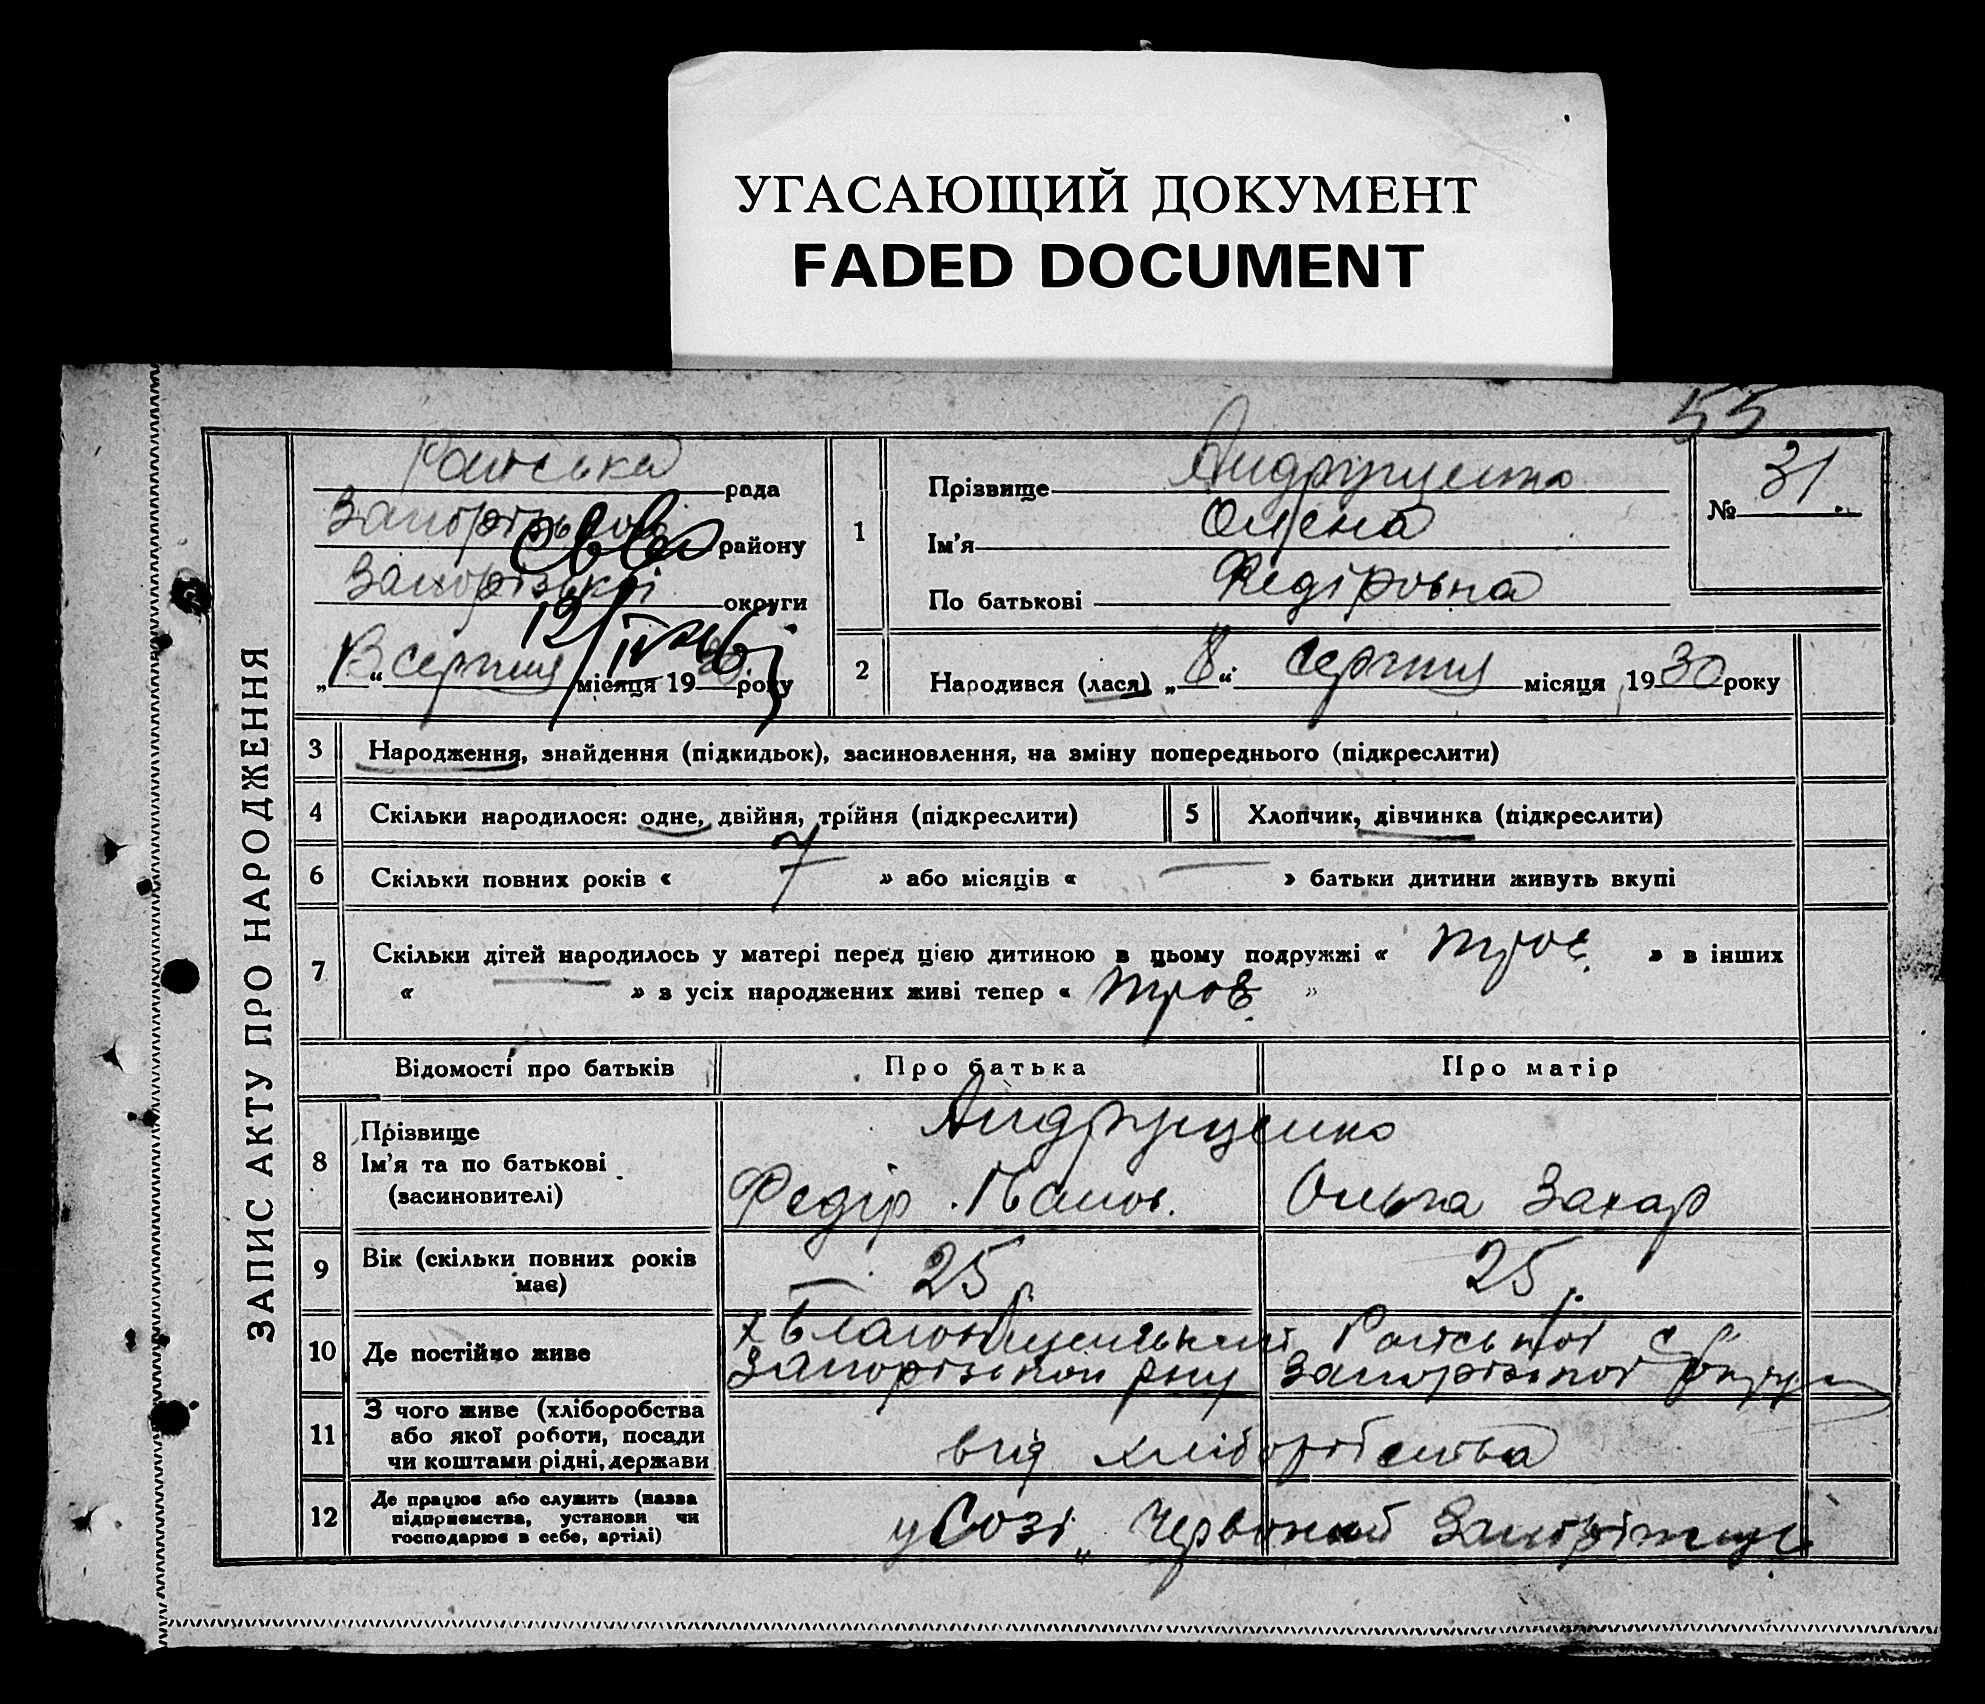 УГАСАЮЩИЙ ДОКУМЕНТ
FADED DOCUMENT
55
ЗАПИС АКТУ ПРО НАРОДЖЕННЯ
рада
Запорізького району
Запорізької округи
12/IV 46
„13“ серпня місяця 1930 року
1
Прізвище Андрущенко
Ім'я Олена
По батькові Федіровна
№ 31.
2
Народився (лася) „8“ серпня місяця 1930 року
3 Народження, знайдення (підкидьок), засиновлення, на зміну попереднього (підкреслити)
4 Скільки народилося: одне, двійня, трійня (підкреслити)
5 Хлопчик, дівчинка (підкреслити)
6 Скільки повних років « 7 » або місяців « — » батьки дитини живуть вкупі
7 Скільки дітей народилось у матері перед цією дитиною в цьому подружжі « троє » в інших
« — » з усіх народжених живі тепер « троє »
Відомості про батьків Про батька Про матір
8 Прізвище
Ім'я та по батькові
(засиновителі)
Андрущенко
Федір Іванов. Ольга Захар
9 Вік (скільки повних років
має)
25 р. 25 р.
10 Де постійно живе
х Благовіщенський
Запорізької рну Запорізької округи
11 З чого живе (хліборобства
або якої роботи, посади
чи коштами рідні, держави
від хліборобства
12 Де працює або служить (назва
підприємства, установи чи
господарює в себе, артілі)
у Созі „Червоний Запоріжець